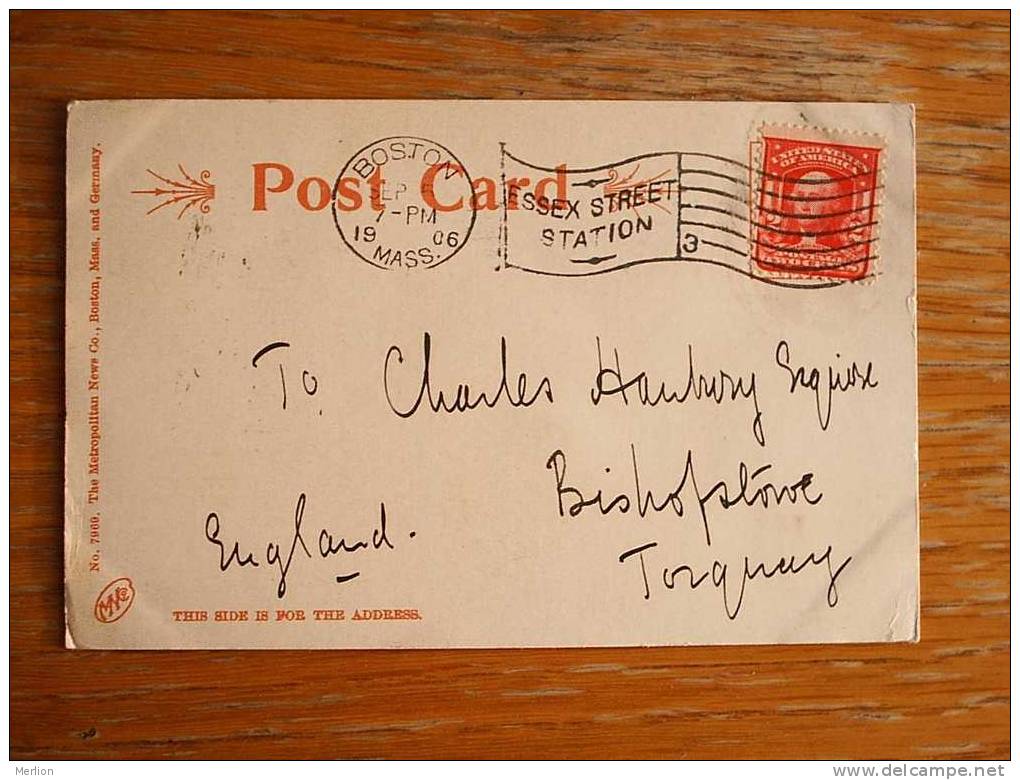 Post Card
BOSTON
SEP 5
7-PM
19 06
MASS.
ESSEX STREET
STATION
3
UNITED STATES
OF AMERICA
To Charles Hanbury Esquire
Bishopstowe
Torquay
England.
THIS SIDE IS FOR THE ADDRESS.
No. 7969. The Metropolitan News Co., Boston, Mass., and Germany.
Merlion
www.delcampe.net